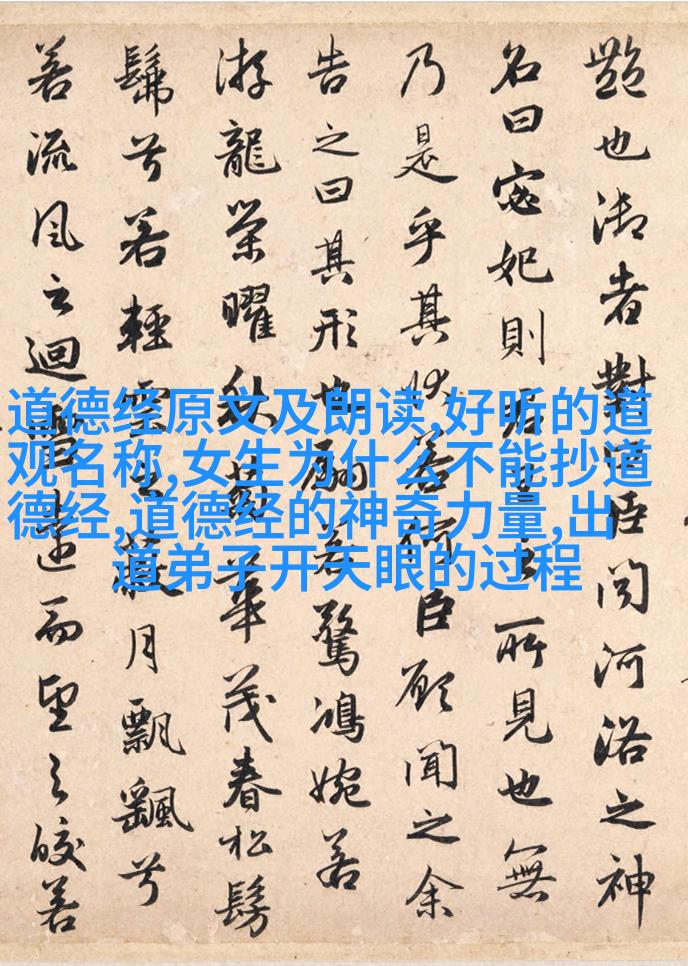 艷也御者對曰臣聞河洛之神
名曰宓妃則君王之所見也無
乃是乎其狀若何臣願聞之余
告之曰其形也翩若驚鴻婉若
游龍榮曜秋菊華茂春松髣
髴兮若輕雲之蔽月飄颻兮
若流風之迴雪遠而望之皎若
道德经原文及朗读,好听的道
观名称,女生为什么不能抄道
德经,道德经的神奇力量,出
道弟子开天眼的过程